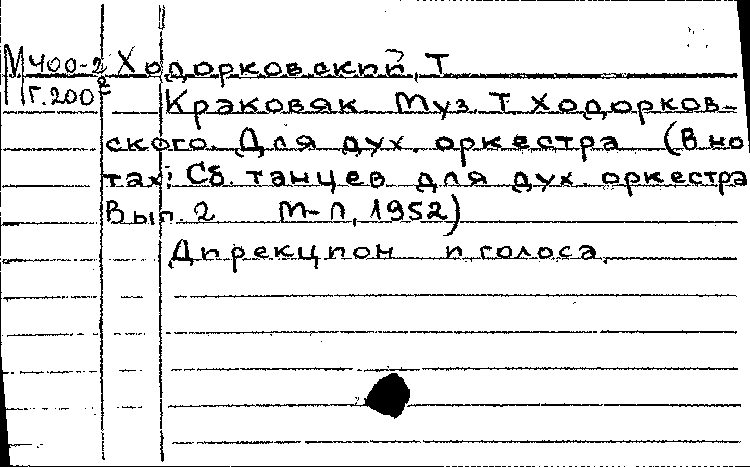 М 400-2 Ходорковский, Т
Г.200
Краковяк. Муз. Т. Ходорков-
ского. Для дух. оркестра (В но
тах: Сб. танцев для дух. оркестра
Вып. 2 М-Л, 1952)
Дирекцион и голоса.